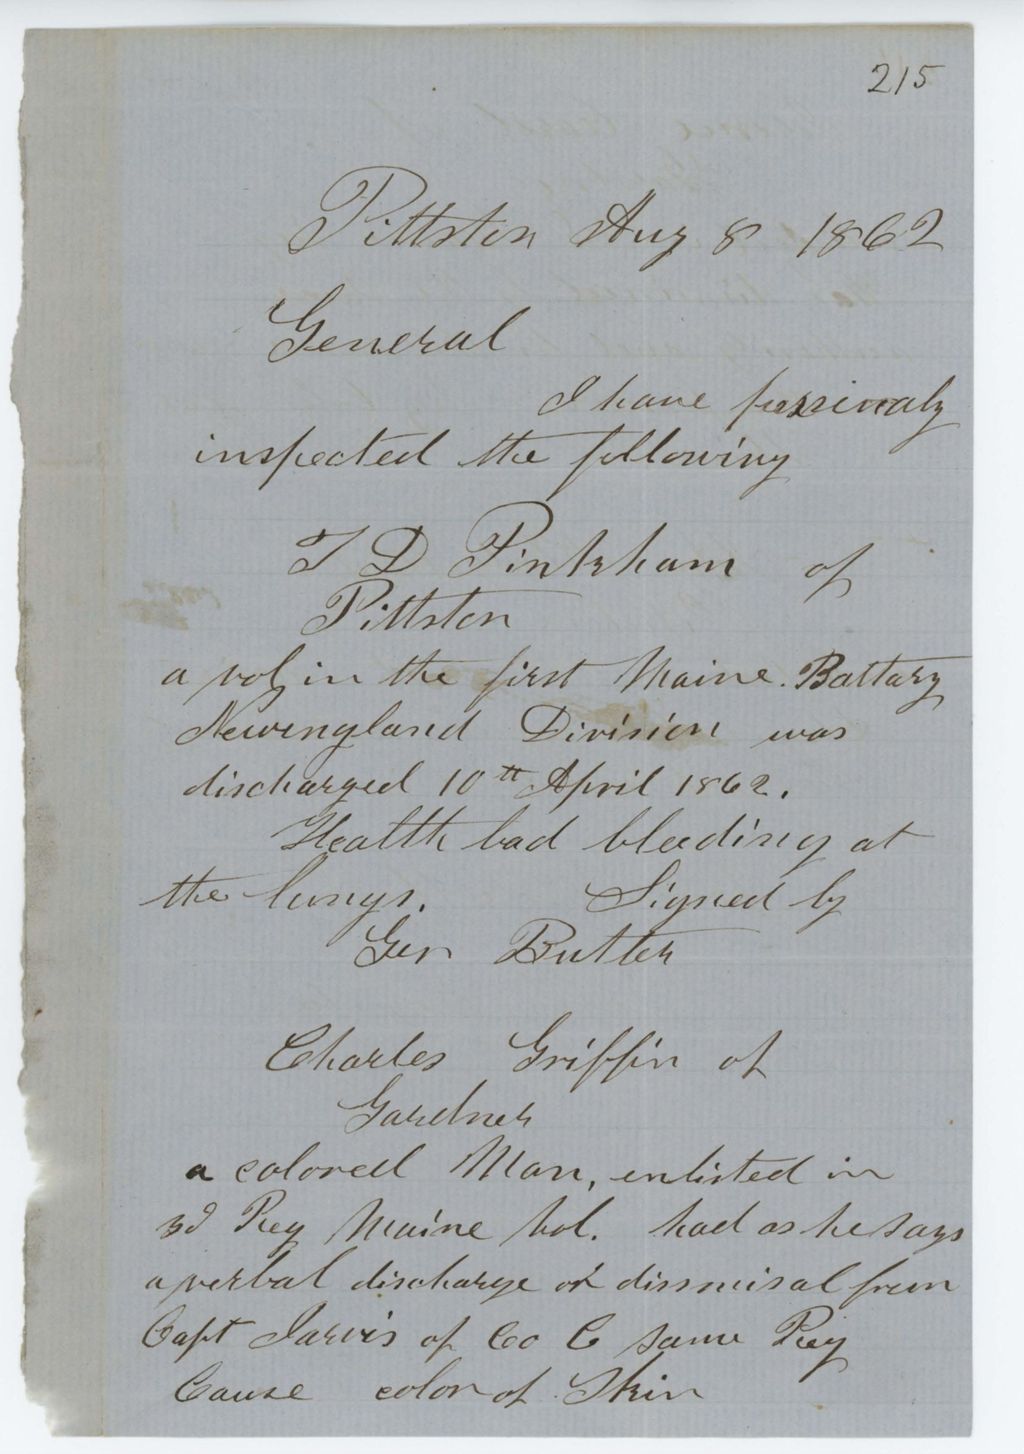 215
Pittston Aug 8 1862
General
I have perssinaly
inspected the following
T D Pinkham of
Pittston
a vol in the first Maine. Battary
Newengland Division was
discharged 10th April 1862.
Health bad bleeding at
the lungs. Signed by
Gen Butler
Charles Griffin of
Gardner
a colored Man, enlisted in
3d Reg Maine Vol. had as he says
a verbal discharge or dissmisal from
Capt Jarvis of Co C same Reg
Cause color of Skin